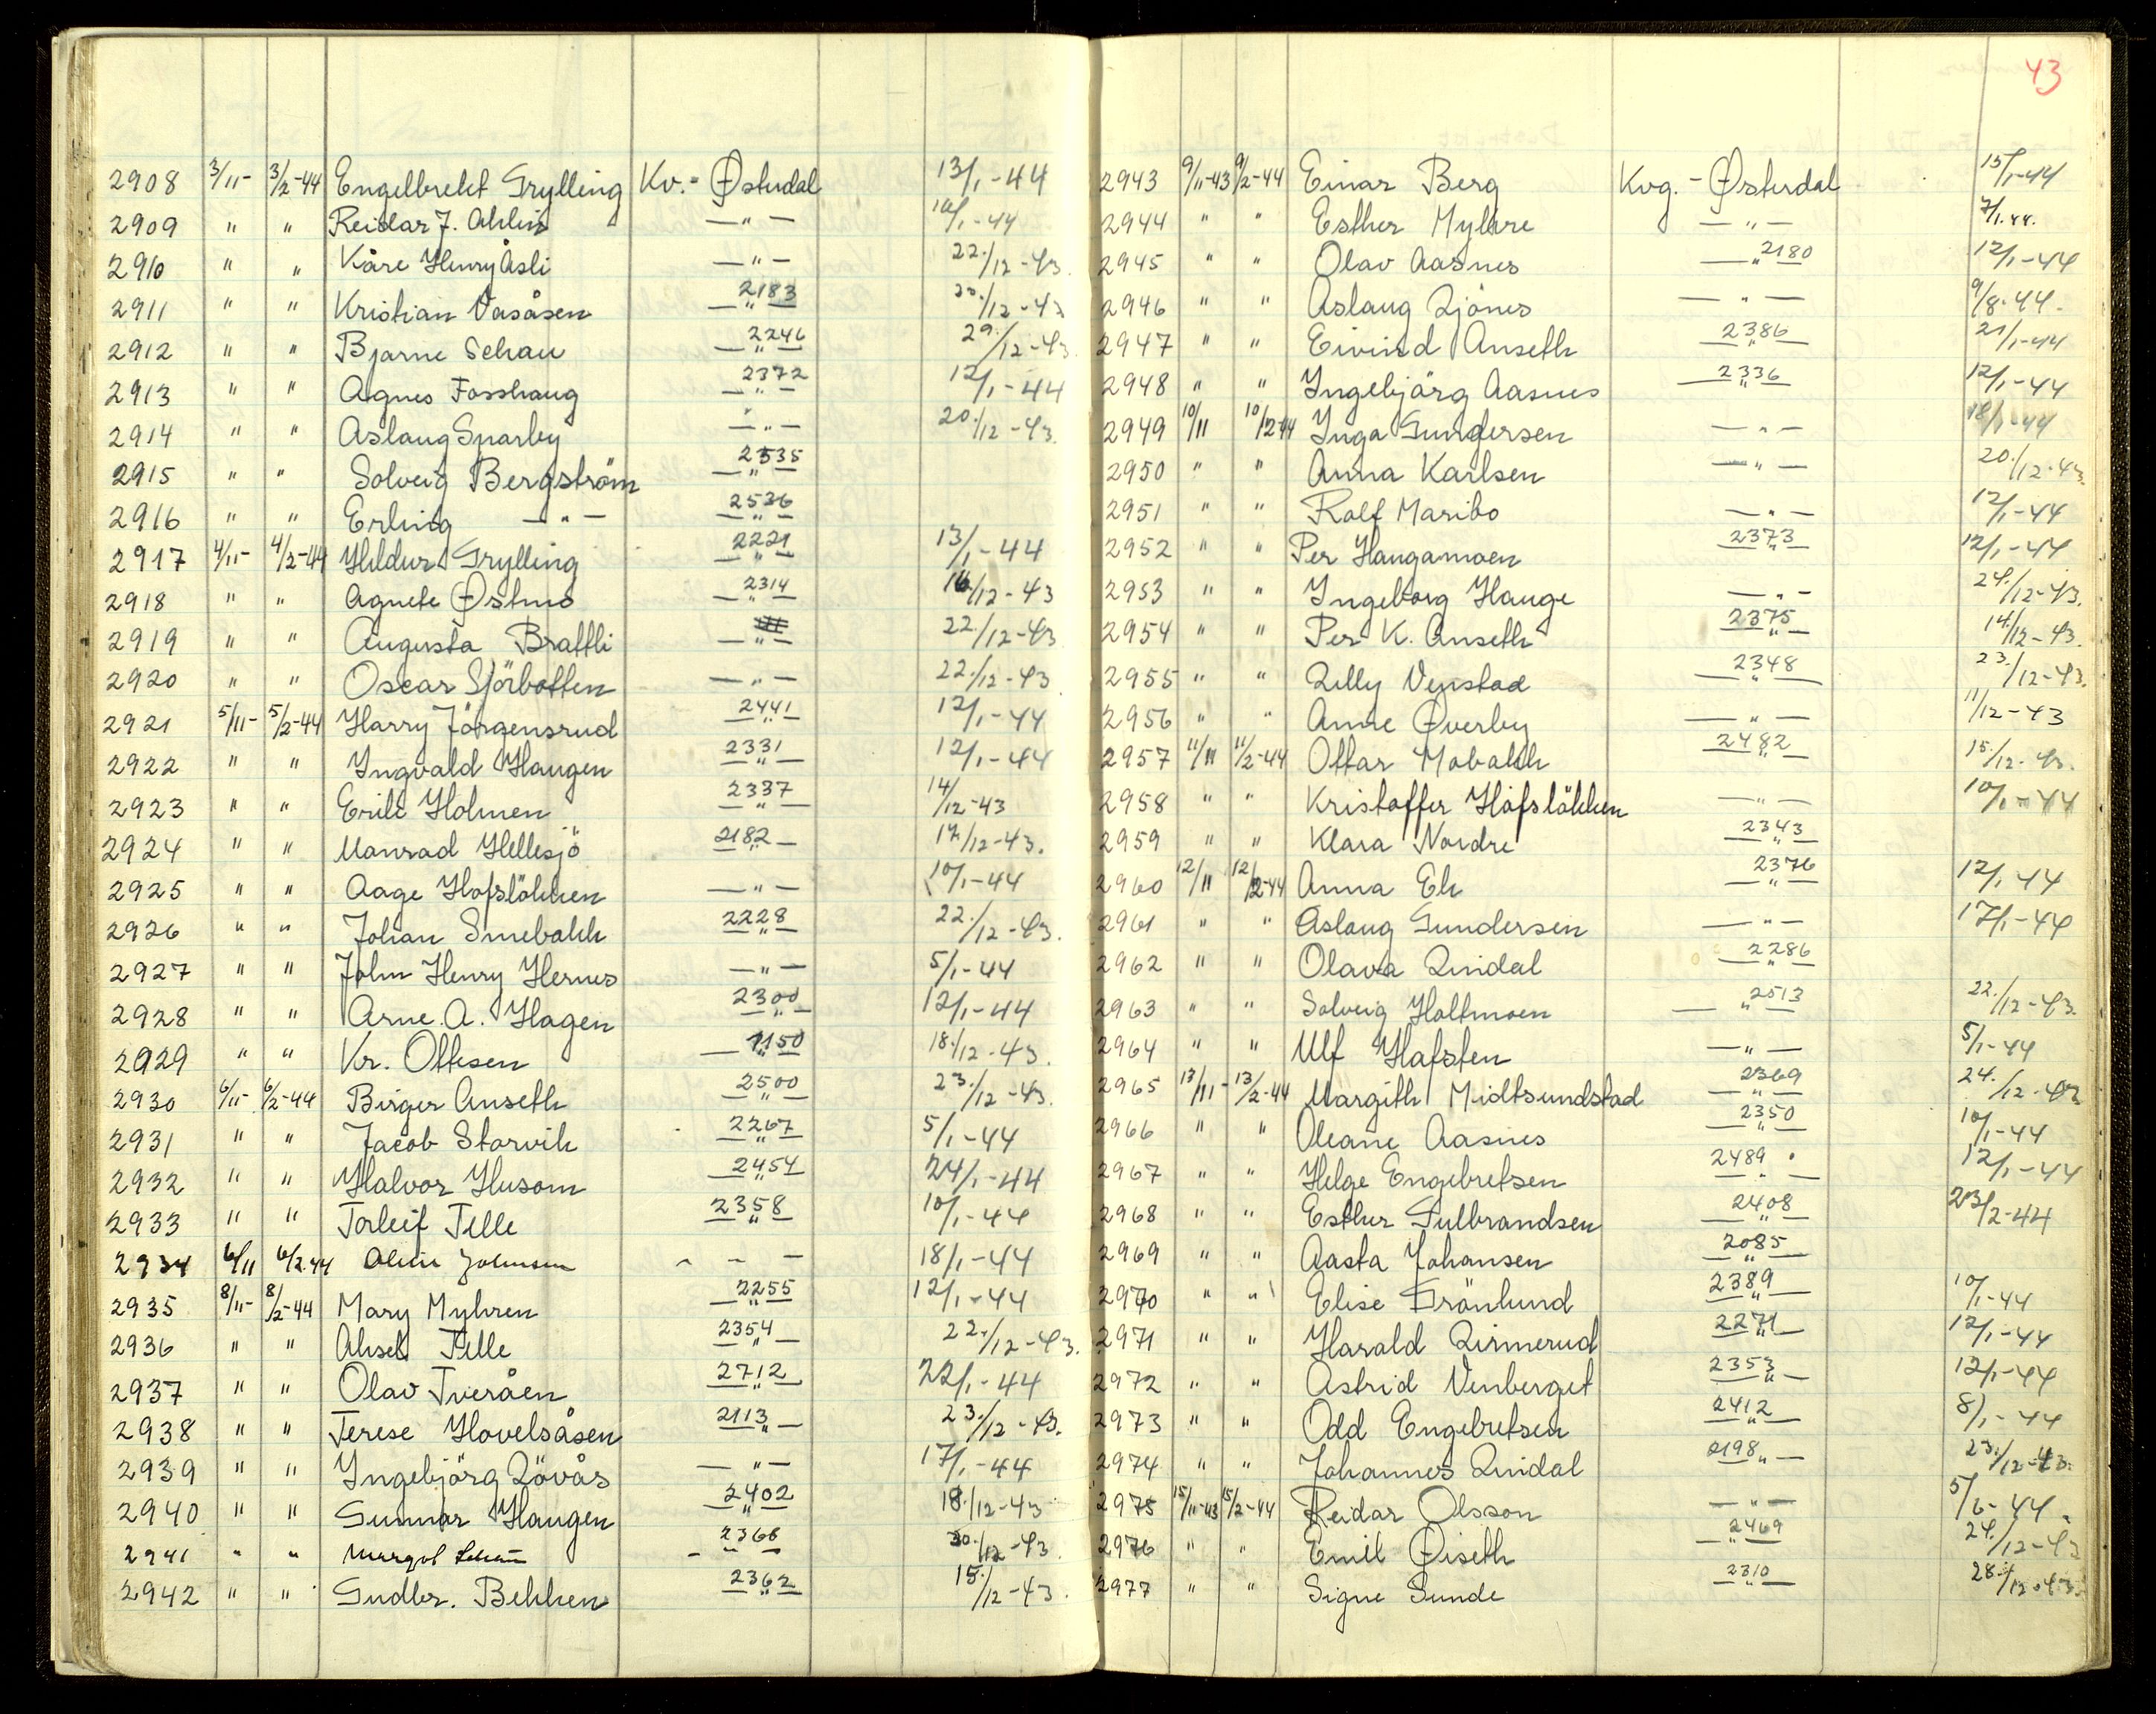 2908 3/11- 3/2-44 Engelbrekt Grylling Kv.- Østerdal 13/1-44
2909 " " Reidar J. Ahlin —"— 10/1-44
2910 " " Kåre Henry Åsli —"— 22./12-43.
2911 " " Kristian Vasåsen —"— 2183 /12-43
2912 " " Bjarne Schau —"— 2246 29./12-43.
2913 " " Agnes Fosshaug —"— 2372 12/1-44
2914 " " Aslaug Sparby —"— 20./12-43.
2915 " " Solveig Bergström —"— 2535
2916 " " Erling —"— —"— 2536
2917 4/11- 4/2-44 Hildur Grylling —"— 2221 13/1-44
2918 " " Agnete Østmo —"— 2314 16/12-43
2919 " " Augusta Brattli —"— 22./12-43
2920 " " Oscar Sjörbotten —"— 22./12-43
2921 5/11- 5/2-44 Harry Jörgensrud —"— 2441 12/1-44
2922 " " Ingvald Haugen —"— 2331 12/1-44
2923 " " Erik Holmen —"— 2337 14/12-43
2924 " " Manrad Hellesjö —"— 2182 17./12-43.
2925 " " Aage Hofslökken —"— 10/1-44
2926 " " Johan Smebakk —"— 2228 22./12-43.
2927 " " John Henry Hernes —"— 5/1-44
2928 " " Arne. A. Hagen —"— 2300 12/1-44
2929 " " Kr. Ottesen —"— 1150 18./12-43.
2930 6/11- 6/2-44 Birger Anseth —"— 2500 23./12-43.
2931 " " Jacob Storvik —"— 2267 5/1-44
2932 " " Halvor Husom —"— 2454 24/1-44
2933 " " Torleif Telle —"— 2358 10/1-44
2934 6/11 6/2.44 Johnsen - - — 18/1-44
2935 8/11- 8/2-44 Mary Myhren —"— 2255 12/1-44
2936 " " Aksel Telle —"— 2354 22./12-43.
2937 " " Olav Tveråen —"— 2712 22/1-44
2938 " " Terese Hovelsåsen —"— 2113 23./12-43.
2939 " " Ingebjörg Lövås —"— 17/1-44
2940 " " Gunnar Haugen —"— 2402 18./12-43
2941 " " Margot —"— 2368 30./12-43
2942 " " Gudbr. Bekken —"— 2362 15./12-43.
43
2943 9/11-43 9/2-44 Einar Berg Kvg.- Østerdal 15/1-44
2944 " " Esther Myhre —"— 7/1.44.
2945 " " Olav Aasnes —"— 2180 12/1-44
2946 " " Aslaug Ljönes —"— 9/8-44.
2947 " " Eivind Anseth —"— 2386 21/1-44
2948 " " Ingebjörg Aasnes —"— 2336 12/1-44
2949 10/11 10/2-44 Inga Gundersen —"— 18/1-44
2950 " " Anna Karlsen —"— 20./12-43.
2951 " " Rolf Maribo —"— 12/1-44
2952 " " Per Haugamoen —"— 2373 12/1-44
2953 " " Ingeborg Hauge —"— 24./12-43.
2954 " " Per K. Anseth —"— 2375 14/12-43.
2955 " " Lilly Venstad —"— 2348 23./12-43.
2956 " " Anne Øverby —"— 11/12-43
2957 11/11 11/2-44 Ottar Mobakk —"— 2482 15./12-43.
2958 " " Kristoffer Hofslökken —"— 10/1-44
2959 " " Klara Nordre —"— 2343
2960 12/11 12/2-44 Anna Ek —"— 2376 12/1-44
2961 " " Aslaug Gundersen —"— 17/1-44
2962 " " Olava Lindal —"— 2286
2963 " " Solveig Holtmoen —"— 2513 22./12-43.
2964 " " Ulf Hafsten —"— 5/1-44
2965 13/11- 13/2-44 Margith Midtsundstad —"— 2369 24./12-43
2966 " " Oleane Aasnes —"— 2350 10/1-44
2967 " " Helge Engebretsen —"— 2489 12/1-44
2968 " " Esther Gulbrandsen —"— 2408 23/2-44
2969 " " Aasta Johansen —"— 2085
2970 " " Elise Grönlund —"— 2389 10/1-44
2971 " " Harald Lirmerud —"— 2271 12/1-44
2972 " " Astrid Venberget —"— 2353 12/1-44
2973 " " Odd Engebretsen —"— 2412 8/1-44
2974 " " Johannes Lindal —"— 2198 23./12-43.
2975 15/11-43 15/2-44 Reidar Olsson —"— 5/6-44.
2976 " " Emil Øiseth —"— 2469 24./12-43
2977 " " Signe Sunde —"— 2310 28./12-43.